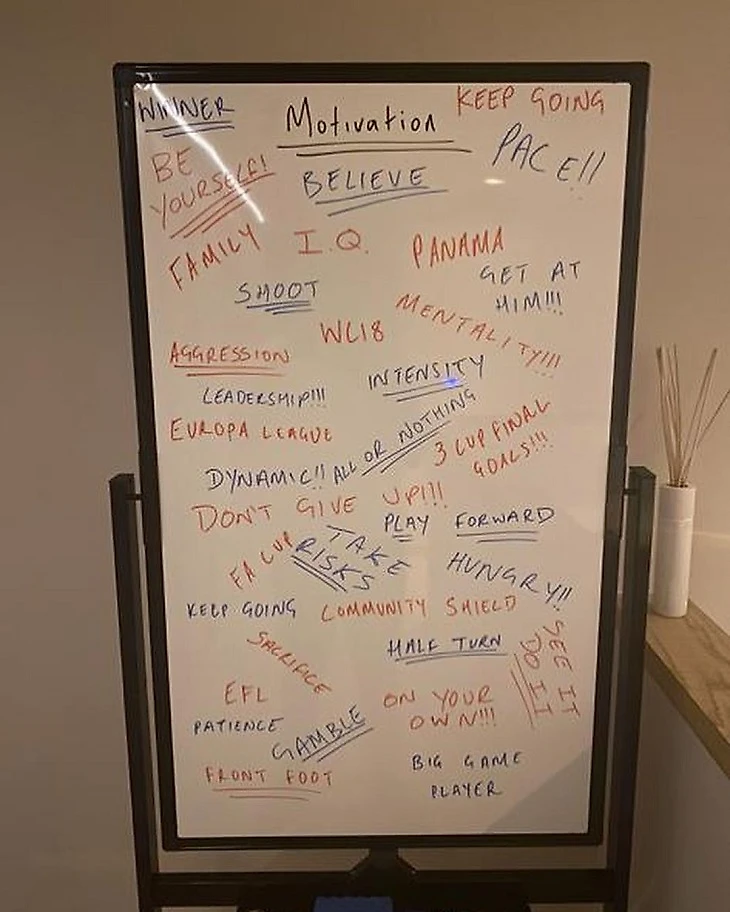 WINNER
Motivation
KEEP GOING
BE
YOURSELF!
BELIEVE
PACE!!
FAMILY
I.Q.
PANAMA
SHOOT
GET AT
HIM!!!
WC18
MENTALITY!!!
AGGRESSION
INTENSITY
LEADERSHIP!!!
EUROPA LEAGUE
ALL OR NOTHING
3 CUP FINAL
GOALS!!!
DYNAMIC!!
DON'T GIVE UP!!!
PLAY FORWARD
FA CUP
TAKE
RISKS
HUNGRY!!
KEEP GOING
COMMUNITY SHIELD
SACRIFICE
HALF TURN
SEE IT
DO IT
EFL
ON YOUR
OWN!!!
PATIENCE
GAMBLE
FRONT FOOT
BIG GAME
PLAYER